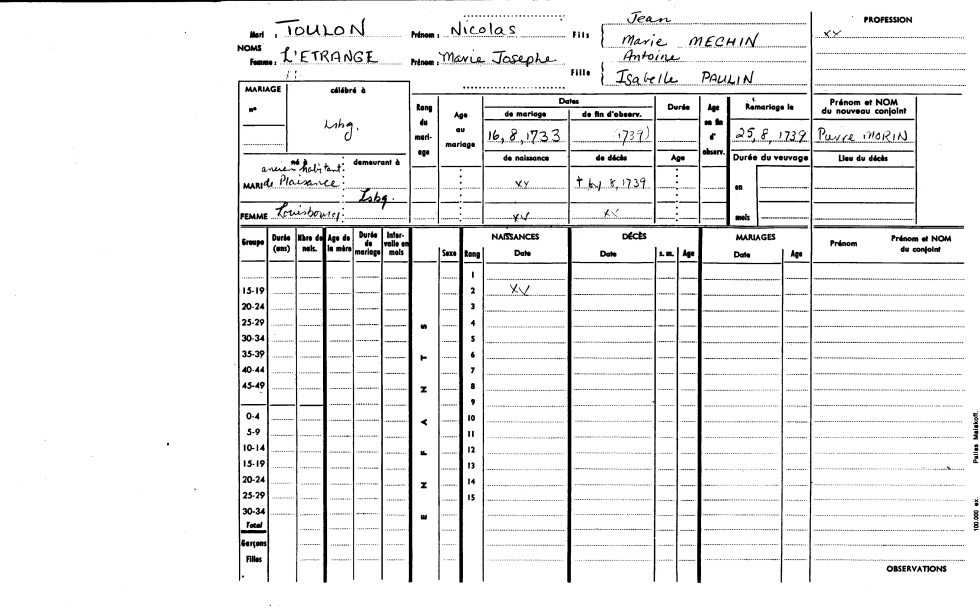 Jean
Mari : TOULON Prénom : Nicolas Fils Marie MECHIN PROFESSION
XX
NOMS
Antoine
Femme : L'ETRANGE Prénom : Marie Josephe Fille Isabelle PAULIN
MARIAGE célébré à
n° Lsbg.
Rang du mariage Age au mariage Dates Durée Age en fin d'observ. Remariage le Prénom et NOM du nouveau conjoint
de mariage de fin d'observ.
16, 8, 1733 (1739) 25, 8, 1739 Pierre MORIN
de naissance de décès Age Durée du veuvage Lieu du décès
né à demeurant à
ancien habitant
MARI de Plaisance Lsbg. XX † by 8, 1739 en
FEMME Louisbourg XX XX mois
Groupe Durée (ans) Nbre de nais. Age de la mère Durée de mariage Intervalle en mois ENFANTS Sexe Rang NAISSANCES DÉCÈS MARIAGES Prénom Prénom et NOM du conjoint
Date Date s. m. Age Date Age
1
15-19 2 XX
20-24 3
25-29 4
30-34 5
35-39 6
40-44 7
45-49 8
9
0-4 10
5-9 11
10-14 12
15-19 13
20-24 14
25-29 15
30-34
Total
Garçons
Filles
OBSERVATIONS
100.000 ex. Pallas Malakoff.